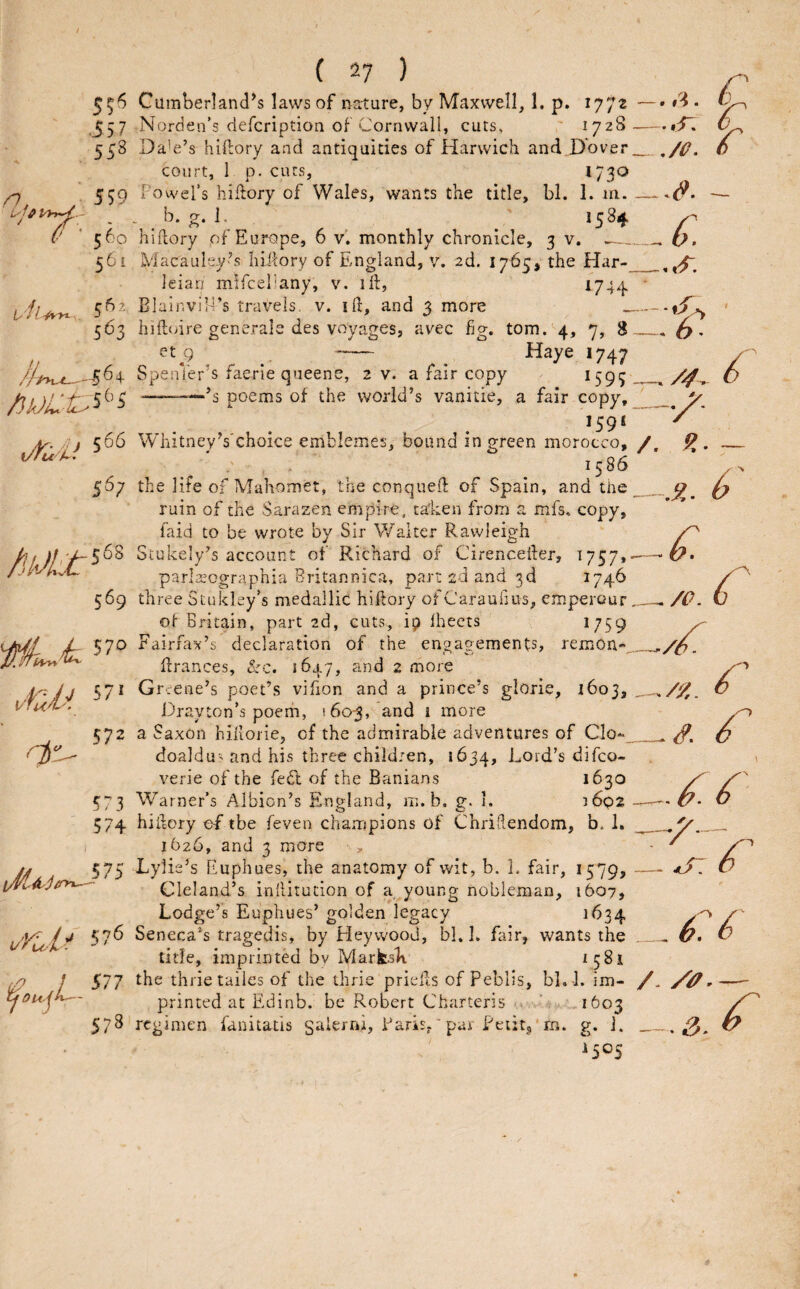 ( 27 )
556 Cumberland's laws of nature, by Maxwell, l. p. 1772 — . 3. 6
557 Norden's deſcription of Cornwall, cuts, 1728 — . 5. 6
558 Dale's hiſtory and antiquities of Harwich and Dover . 10. 6
court, l p. cuts, 1730
559 Powel's hiſtory of Wales, wants the title, bl. l. m. — . 8. —
b. g. l. 1584
560 hiſtory of Europe, 6 v. monthly chronicle, 3 v. — . 6.
561 Macauley's hiſtory of England, v. 2d. 1765, the Har- . 5.
leian miſcellany, v. 1ſt, 1744
562 Blainvill's travels. v. 1ſt, and 3 more — . 5
563 hiſtoire generale des voyages, avec fig. tom. 4, 7, 8 — . 6.
et 9 —— Haye 1747
564 Spenſer's faerie queene, 2 v. a fair copy 1595 — . 14. 6
565 ———'s poems of the world's vanitie, a fair copy, . 7.
1591
566 Whitney's choice emblemes, bound in green morocco, 1. 2. —
1586
567 the life of Mahomet, the conqueſt of Spain, and the . 2. 6
ruin of the Sarazen empire, taken from a mſs. copy,
ſaid to be wrote by Sir Walter Rawleigh
568 Stukely's account of Richard of Cirenceſter, 1757, — 6.
parlæographia Britannica, part 2d and 3d 1746
569 three Stukley's medallic hiſtory of Carauſius, emperour — . 10. 6
of Britain, part 2d, cuts, in ſheets 1759
570 Fairfax's declaration of the engagements, remon- — . 16.
ſtrances, &c. 1647, and 2 more
571 Greene's poet's viſion and a prince's glorie, 1603, — . 12. 6
Drayton's poem, 1603, and 1 more
572 a Saxon hiſtorie, of the admirable adventures of Clo- — . 8. 6
doaldus and his three children, 1634, Lord's diſco-
verie of the ſect of the Banians 1630
573 Warner's Albion's England, m. b. g. l. 1602 — . 6. 6
574 hiſtory of the ſeven champions of Chriſtendom, b. l. . 7. —
1626, and 3 more
575 Lylie's Euphues, the anatomy of wit, b. l. fair, 1579, — . 5. 6
Cleland's inſtitution of a young nobleman, 1607,
Lodge's Euphues' golden legacy 1634
576 Seneca's tragedis, by Heywood, bl. l. fair, wants the — . 6. 6
title, imprinted by Marſh 1581
577 the thrie tailes of the thrie prieſts of Peblis, bl. l. im- 1. 10. —
printed at Edinb. be Robert Charteris 1603
578 regimen ſanitatis galerni, Paris, par Petit, m. g. l. — . 3. 6
1505